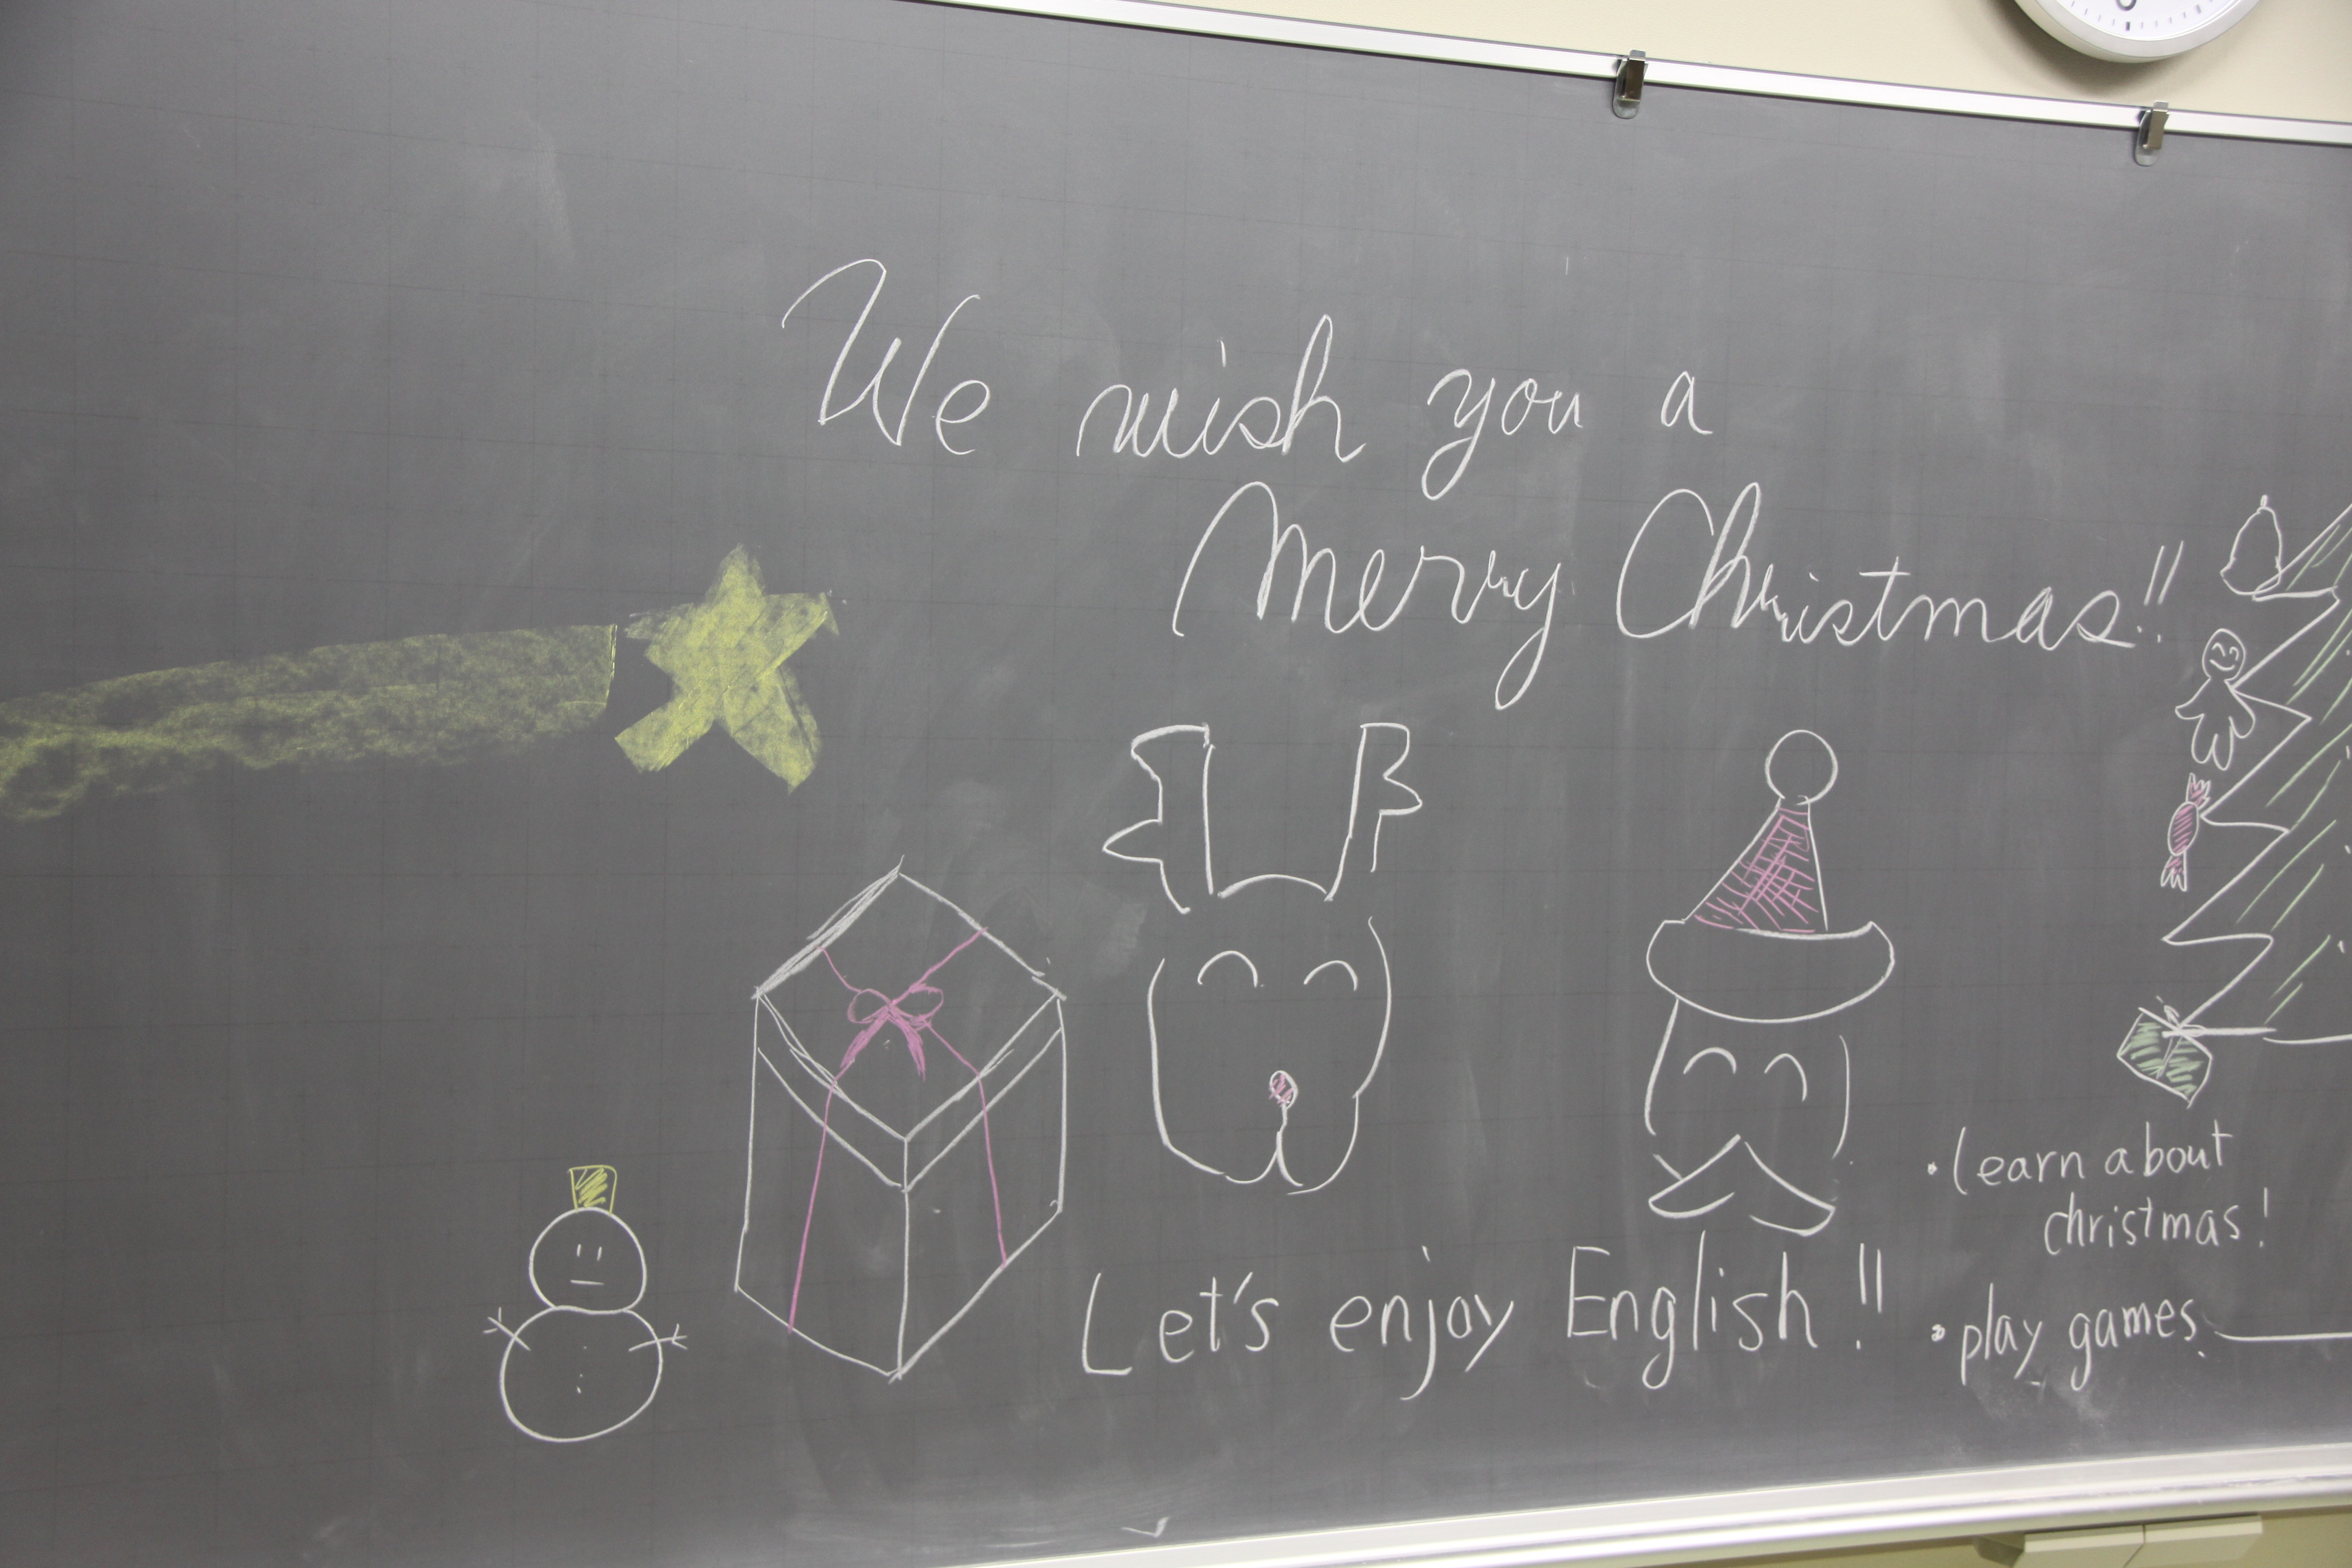 We wish you a
Merry Christmas!!
Let's enjoy English!!
• learn about
christmas!
• play games.